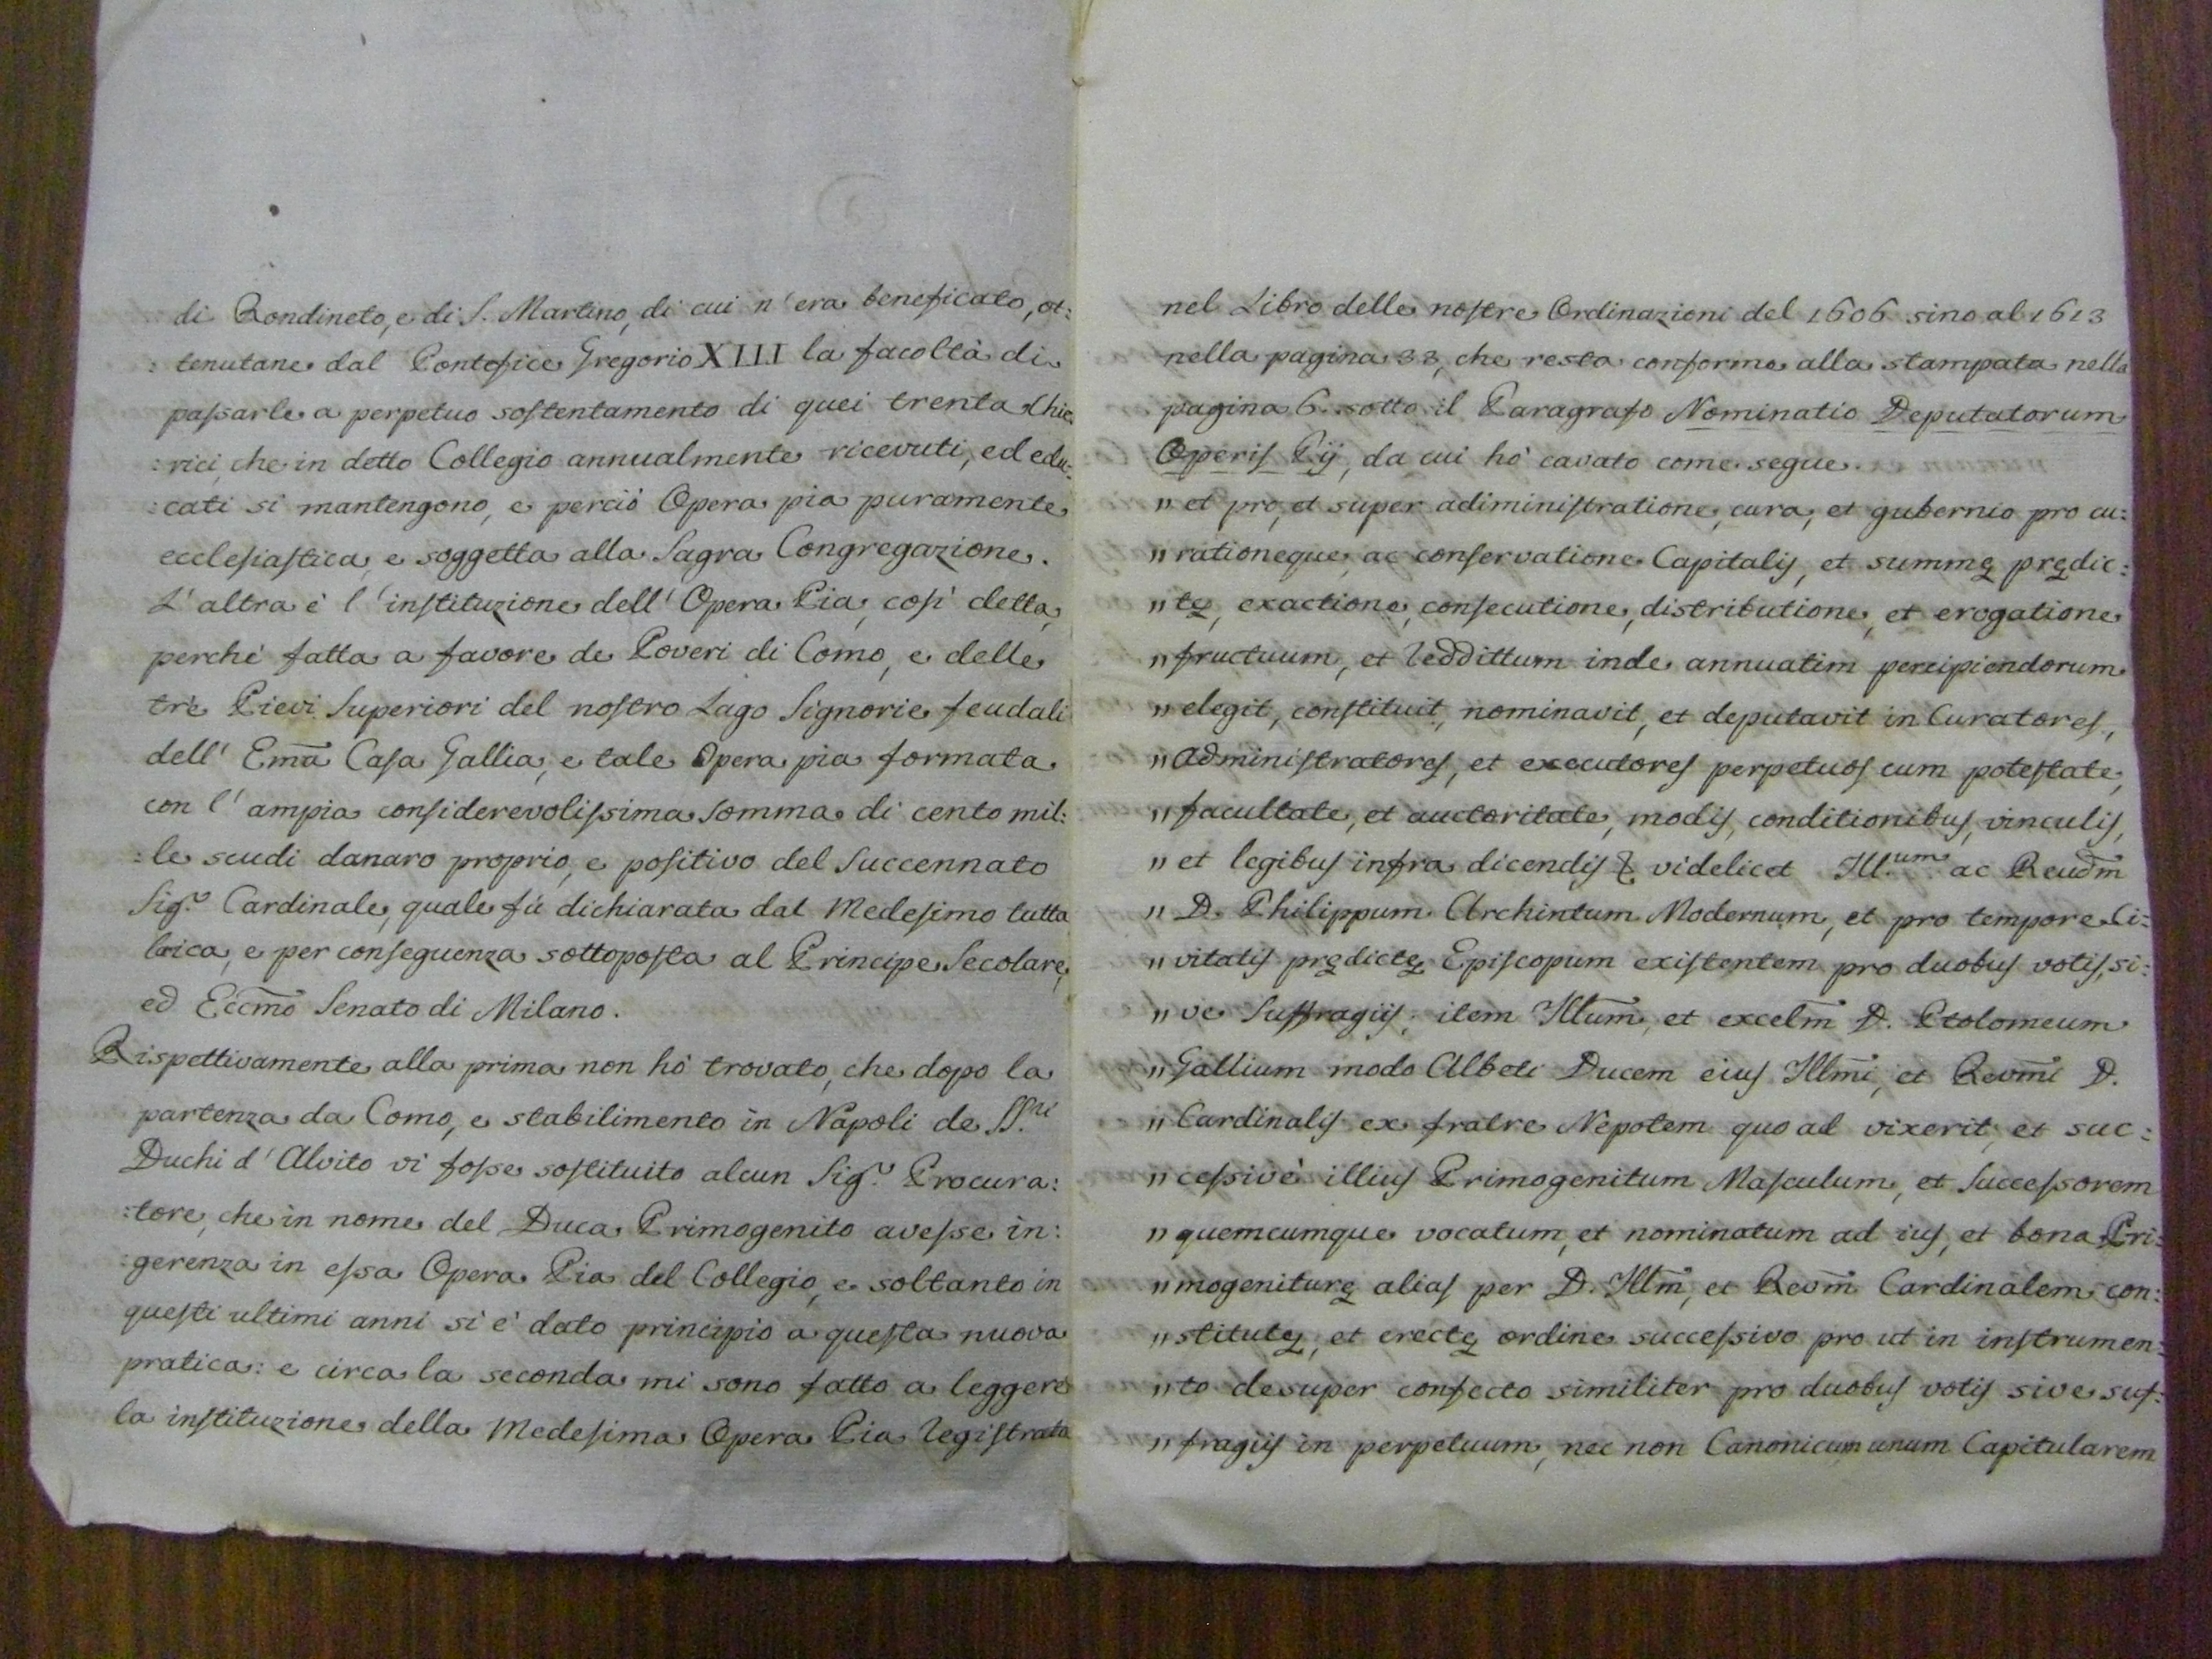 di Rondineto, e di S. Martino, di cui n'era beneficato, ot:
:tenutane dal Pontefice Gregorio XIII la facoltà di
passarle a perpetuo sostentamento di quei trenta Chie:
:rici, che in detto Collegio annualmente ricevuti, ed edu:
:cati si mantengono, e perciò Opera pia puramente
ecclesiastica, e soggetta alla Sagra Congregazione.
L'altra è l'instituzione dell'Opera Pia, così detta,
perchè fatta a favore de Poveri di Como, e delle
trè Pievi Superiori del nostro Lago Signorie feudali
dell' Em̃a Casa Gallia, e tale Opera pia formata
con l'ampia considerevolissima somma di cento mil:
:le scudi danaro proprio, e positivo del Succennato
Sig.r Cardinale, quale fù dichiarata dal Medesimo tutta
laica, e per conseguenza sottoposta al Principe Secolare,
ed Eccm̃o Senato di Milano.
Rispettivamente alla prima non hò trovato, che dopo la
partenza da Como, e stabilimento in Napoli de SS.ri
Duchi d'Alvito vi fosse sostituito alcun Sig.r Procura:
:tore, che in nome del Duca Primogenito avesse in:
:gerenza in essa Opera Pia del Collegio, e soltanto in
questi ultimi anni si è dato principio a questa nuova
pratica: e circa la seconda mi sono fatto a leggere
la instituzione della Medesima Opera Pia registrata
nel Libro delle nostre Ordinazioni del 1606 sino al 1613
nella pagina 33, che resta conforme alla stampata nella
pagina 6. sotto il Paragrafo Nominatio Deputatorum
Operis Pij, da cui hò cavato come segue.
" et pro, et super adiministratione, cura, et gubernio pro cu:
" rationeque, ac conservatione Capitalis, et summę prędic:
" tę, exactione, consecutione, distributione, et erogatione
" fructuum, et reddittum inde annuatim percipiendorum
" elegit, constituit, nominavit, et deputavit in Curatores,
" administratores, et executores perpetuos cum potestate,
" facultate, et auctoritate, modis, conditionibus, vinculis,
" et legibus infra dicendis & videlicet Ill.um ac Reudm̃
" D. Philippum Archintum Modernum, et pro tempore Ci:
" vitatis prędictę Episcopum existentem pro duobus votis, si:
" ve Suffragijs; item Illum̃, et excelm̃ D. Ptolomeum
" Gallium modo Albeti Ducem eius Illm̃i, et Revm̃i D.
" Cardinalis ex fratre Nepotem quo ad vixerit, et suc:
" cessivè illius Primogenitum Masculum, et Successorem
" quemcumque vocatum, et nominatum ad ius, et bona Pri:
" mogeniturę alias per D. Illm̃, et Revm̃ Cardinalem con:
" stitutę, et erectę ordine successivo pro ut in instrumen:
" to desuper confecto similiter pro duobus votis sive suf:
" fragijs in perpetuum, nec non Canonicum unum Capitularem